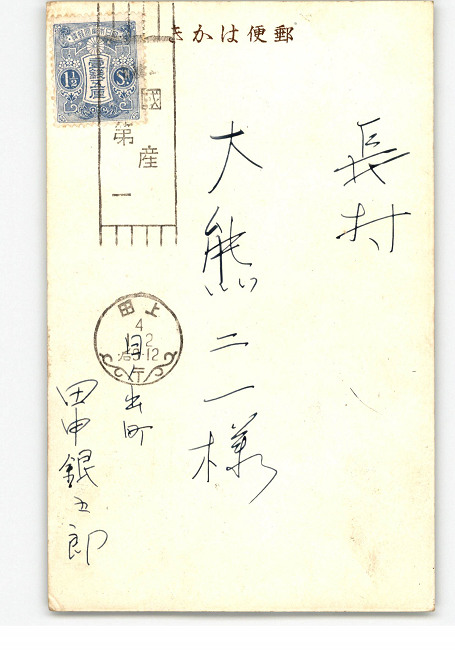 郵便はかき
長村
大熊二一様
出町
田中銀五郎
國産
第一
上田
4
壹錢五厘
1½
Sn.